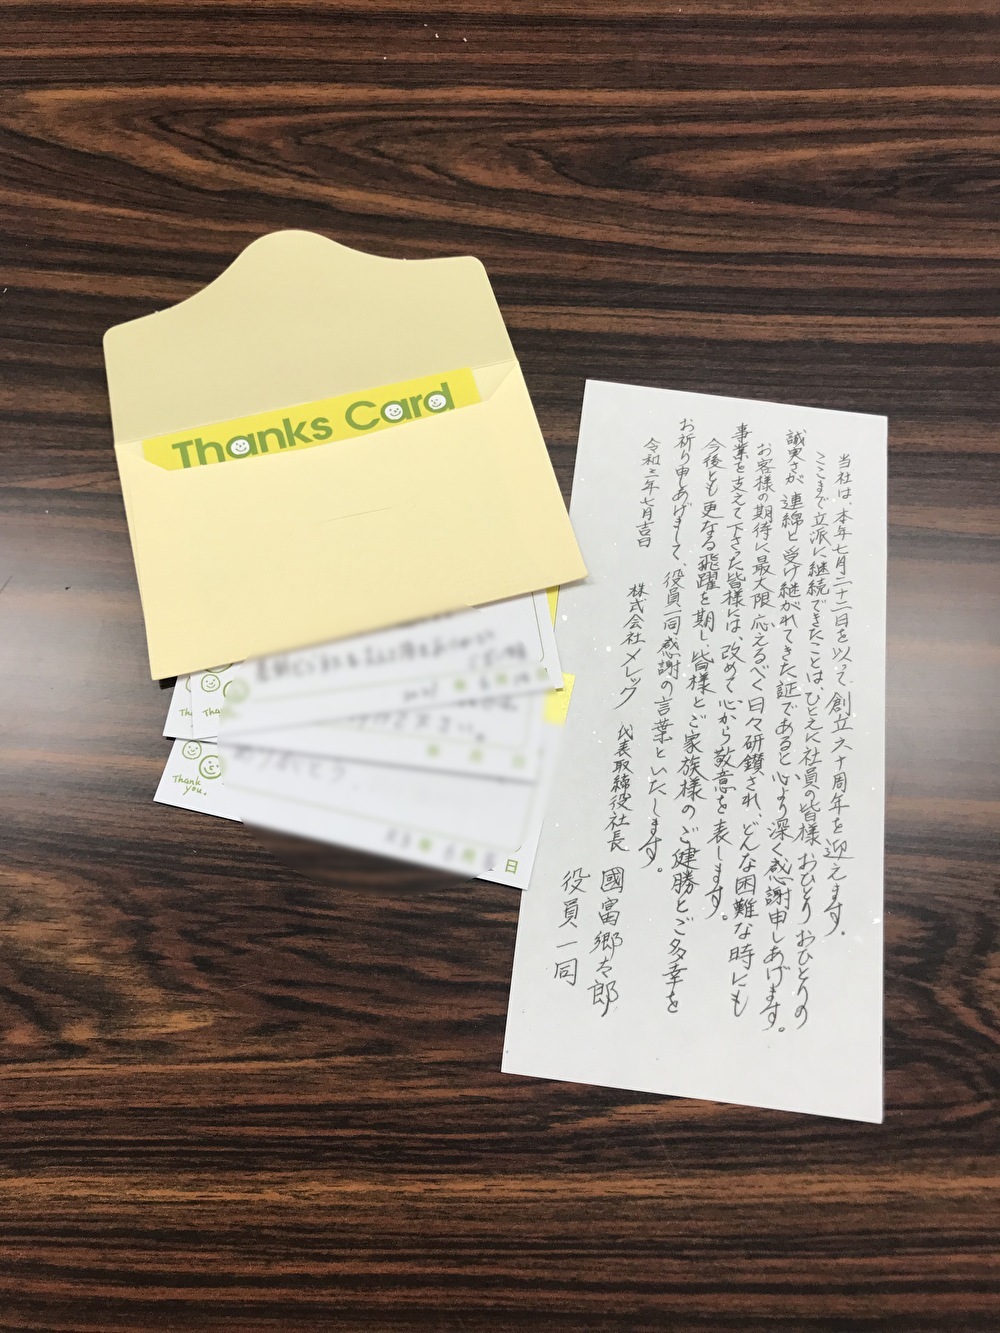 Thanks Card
Thank you.
日
当社は、本年七月二十二日を以て、創立六十周年を迎えます。
ここまで立派に継続できたことは、ひとえに社員の皆様 おひとり おひとりの
誠実さが 連綿と 受け継がれてきた証であると 心より深く感謝申しあげます。
お客様の期待に最大限 応えるべく 日々研鑽され、どんな困難な時にも
事業を支えて下さった皆様には、改めて心から敬意を表します。
今後とも 更なる飛躍を期し、皆様とご家族様のご健勝とご多幸を
お祈り申しあげまして、役員一同感謝の言葉といたします。
令和三年七月吉日
株式会社 メレック 代表取締役社長 國富郷太郎
役員一同